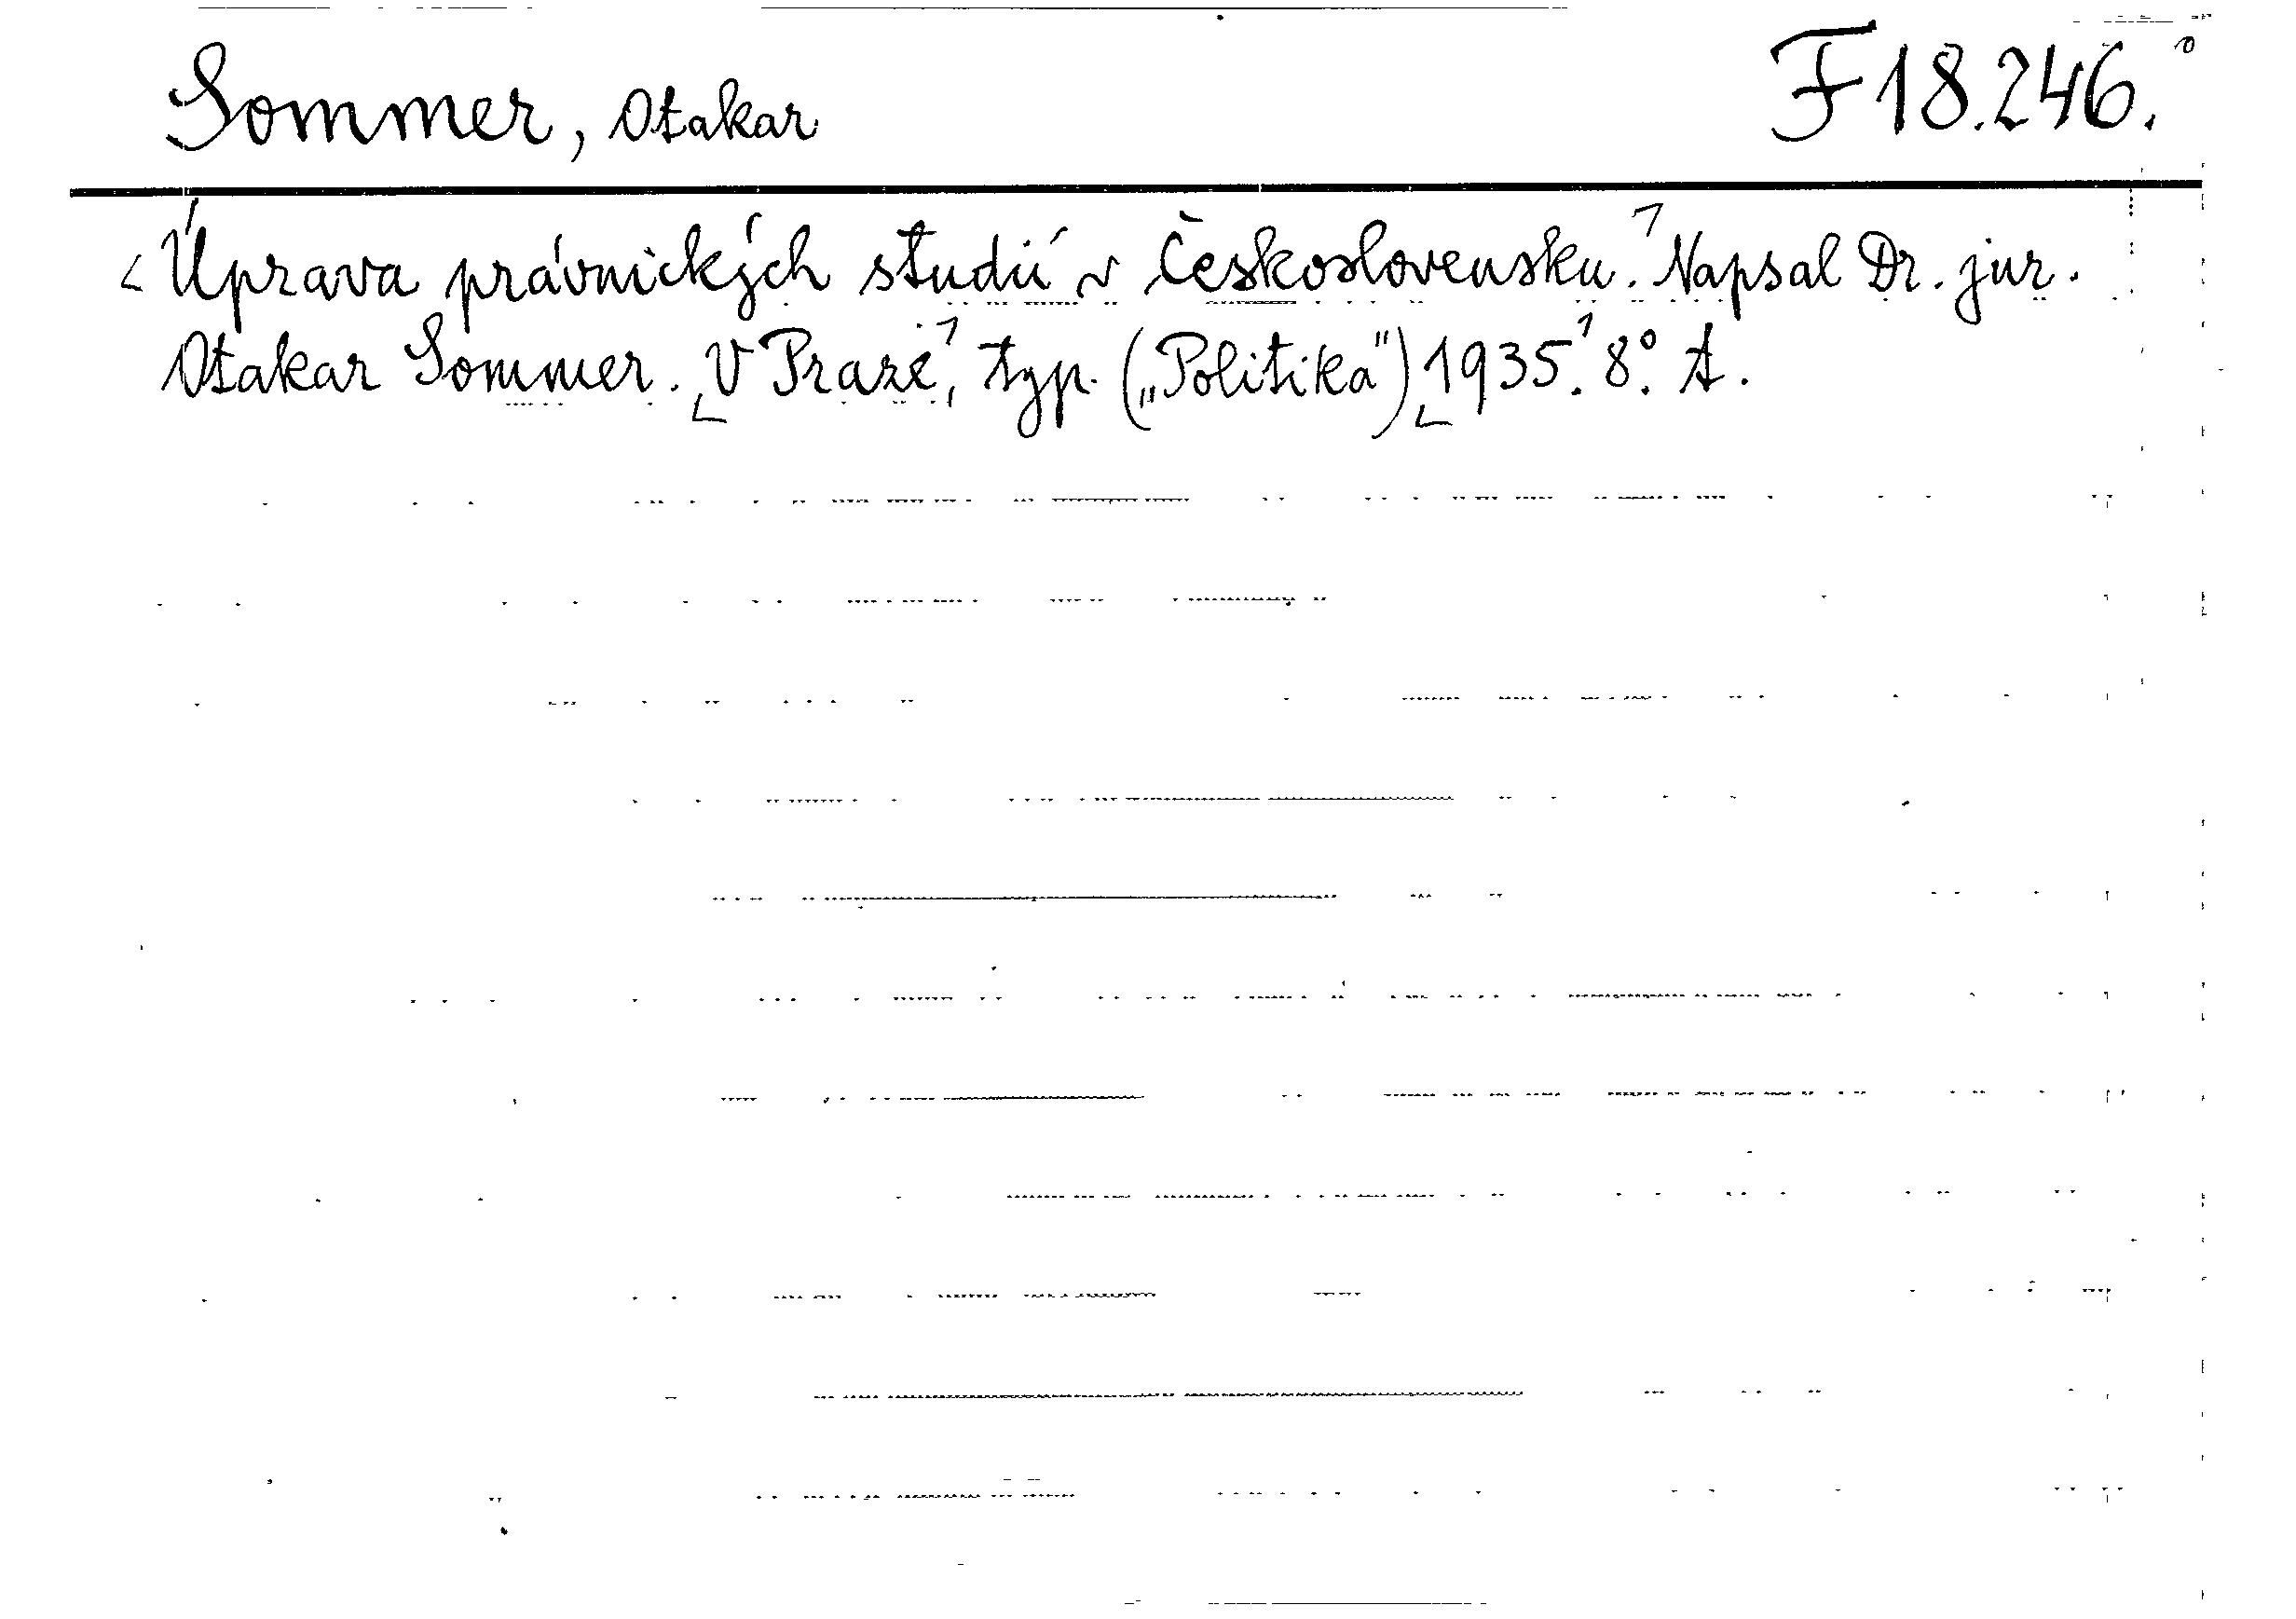 Sommer, Otakar
F 18.246.
Úprava právnických studií v Československu. Napsal Dr. jur.
Otakar Sommer. V Praze, typ. („Politika") 1935. 8° A.